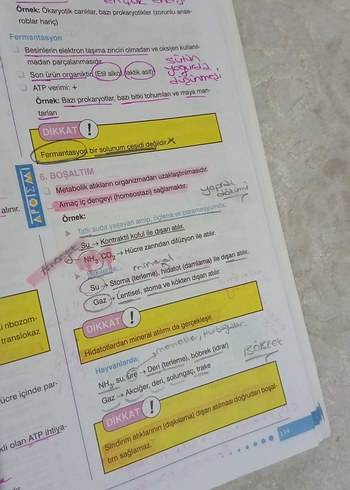 Örnek: Ökaryotik canlılar, bazı prokaryotikler (zorunlu anae-
roblar hariç)
Fermantasyon
Besinlerin elektron taşıma zinciri olmadan ve oksijen kullanıl-
madan parçalanmasıdır.
Son ürün organiktir. (Etil alkol, laktik asit)
sütün
yoğurda
dönüşmesi
ATP verimi: +
Örnek: Bazı prokaryotlar, bazı bitki tohumları ve maya man-
tarları
DİKKAT !
Fermantasyon bir solunum çeşidi değildir.
6. BOŞALTIM
Metabolik atıkların organizmadan uzaklaştırılmasıdır.
Amaç iç dengeyi (homeostazi) sağlamaktır.
Örnek:
Tatlı suda yaşayan amip, öglena ve paramesyumda:
Su → Kontraktil koful ile dışarı atılır.
NH3, CO2 → Hücre zarından difüzyon ile atılır.
mineral
Su → Stoma (terleme), hidatot (damlama) ile dışarı atılır.
Gaz → Lentisel, stoma ve kökten dışarı atılır.
DİKKAT !
Hidatotlardan mineral atılımı da gerçekleşir.
Hayvanlarda:
NH3, su, üre → Deri (terleme), böbrek (idrar)
BÖBREK
Gaz → Akciğer, deri, solungaç, trake
DİKKAT !
Sindirim atıklarının (dışkılama) dışarı atılması doğrudan boşal-
tım sağlamaz.
APOIEMI
alınır.
ribozom-
translokaz
ücre içinde par-
olan ATP ihtiya-
139